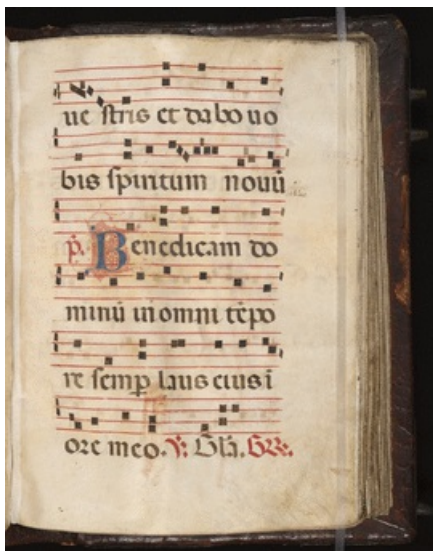 ue stris et dabo uo
bis spiritum nouū
p̄. Benedicam do
minū in omni tēpo
re semp̄ laus eius ī
ore meo. V. Gl̄a.